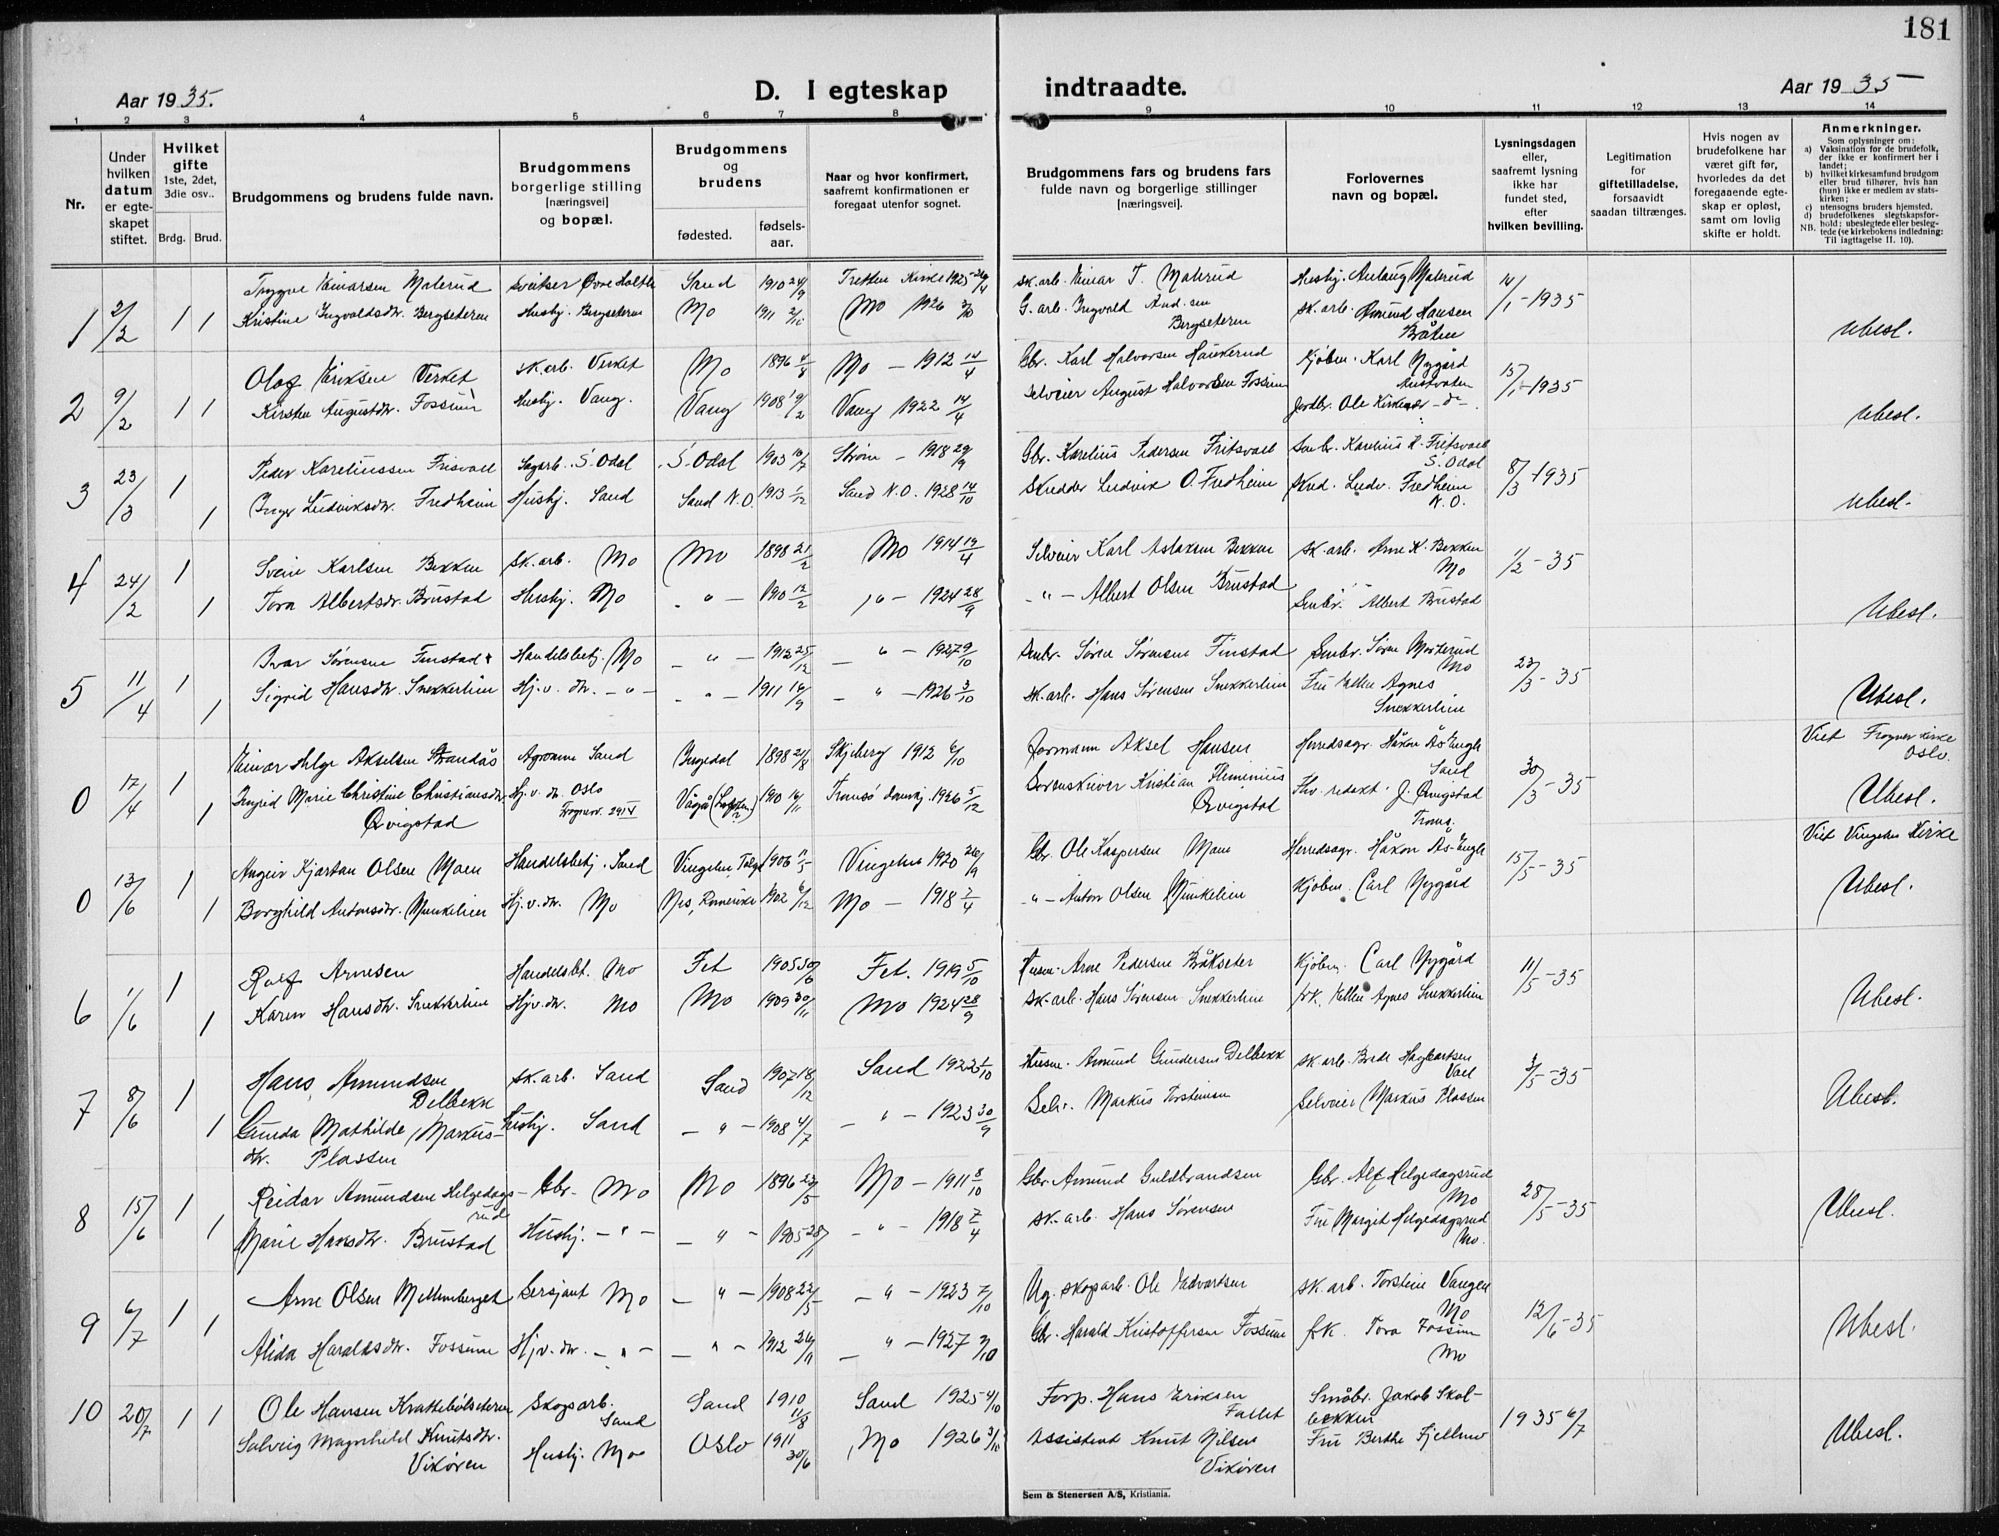 181
Aar 1935.
D. I egteskap
indtraadte.
Aar 1935
1 2 3 4 5 6 7 8 9 10 11 12 13 14
Nr.
Under hvilken datum er egteskapet stiftet.
Hvilket gifte 1ste, 2det, 3die osv..
Brdg. Brud.
Brudgommens og brudens fulde navn.
Brudgommens borgerlige stilling [næringsvei] og bopæl.
Brudgommens og brudens
fødested.
fødsels-aar.
Naar og hvor konfirmert, saafremt konfirmationen er foregaat utenfor sognet.
Brudgommens fars og brudens fars fulde navn og borgerlige stillinger [næringsvei].
Forlovernes navn og bopæl.
Lysningsdagen eller, saafremt lysning ikke har fundet sted, efter hvilken bevilling.
Legitimation for giftetilladelse, forsaavidt saadan tiltrænges.
Hvis nogen av brudefolkene har været gift før, hvorledes da det foregaaende egteskap er opløst, samt om lovlig skifte er holdt.
Anmerkninger.
Som oplysninger om:
a) Vaksination før de brudefolk, der ikke er konfirmert her i landet;
b) hvilket kirkesamfund brudgom eller brud tilhører, hvis han (hun) ikke er medlem av statskirken;
c) utensogns bruders hjemsted.
d) brudefolkenes slegtskapsforhold: ubeslegtede eller beslegtede (se kirkebokens indledning:
NB. Til iagttagelse II. 10).
1 2/2 1 1
Trygve Einarsen Malerud Sveitser Øvre Holtet Sand 1910 24/9 Tretten Kirke 1925
sk.arb. Einar T. Malerud Husbj. Anlaug Malerud 14/1-1935
Kristine Ingvaldsdtr. Bergseteren Husbj. Bergseteren Mo 1911 Mo 1926 3/10
G.arb. Ingvald And.sen Bergseteren sk.arb. Amund Hansen Bråten
Ubesl.
2 9/2 1 1
Olaf Eriksen Verket sk.arb. Verket Mo 1896 Mo - 1912 14/4
Gbr. Karl Halvorsen Haukerud Kjøbm. Karl Nygård Austvatn 15/1-1935
Kirsten Augustdtr. Fossum Husbj. Vang. Vang 1908 19/2 Vang 1922 14/4
Selveier August Halvorsen Fossum Jordbr. Ole Kirkenær - do -
Ubesl.
3 23/3 1 1
Peder Kareliussen Frisvoll Sagarb. S. Odal S. Odal 1903 Strøm - 1918 29/9
Gbr. Karelius Pedersen Fritsvoll Smbr. Karelius K. Fritsvoll S. Odal 8/3-1935
Inger Ludviksdtr. Fredheim Husbj. Sand Sand N.O. 1913 1/12 Sand N.O. 1928 14/10
Skredder Ludvik O. Fredheim Skred. Ludv. Fredheim N.O.
Ubesl.
4 24/2 1 1
Svein Karlsen Bekken sk.arb. Mo Mo 1898 21/2 Mo 1914 19/4
Selveier Karl Aslaksen Bekken sk.arb. Arne K. Bekken Mo 1/2-35
Tora Albertsdtr. Brustad Husbj. Mo - " - - " - 1924 28/9
- " - Albert Olsen Brustad Smbr. Albert Brustad
Ubesl.
5 11/4 1 1
Ivar Sørensen Finstad Handelsbetj. Mo - " - 1912 25/12 - " - 1927 9/10
Smbr. Søren Sørensen Finstad Smbr. Søren Morterud Mo 23/3-35
Sigrid Hansdtr. Snekkerlien Hj.v. dtr. - " - - " - 1911 16/9 - " - 1926 3/10
sk.arb. Hans Sørensen Snekkerlien Fru Ellen Agnes Snekkerlien
Ubesl.
0 17/4 1 1
Einar Helge Akselsen Strandås Agronom Sand Ingedal 1898 21/8 Skjeberg 1912 6/10
Formann Aksel Hansen Herredsagr. Håkon Ås-Engle Sand 30/3-35
Ingrid Marie Christine Christiansdtr. Qvigstad Hj.v. dtr. Oslo Vågå 1910 Tromsø domkj. 1926 5/12
Sorenskriver Kristian Fleminius Qvigstad Hv. redakt. J. Qvigstad Troms.
Viet Frogner kirke Oslo.
Ubesl.
0 13/6 1 1
Kjartan Olsen Moen Handelsbetj. Sand Vingelen Tolga 1906 11/5 Vingelen 1920 26/9
Gbr. Ole Kaspersen Moen Herredsagr. Håkon Ås-Engle 15/5-35
Borghild Antonsdtr. Munkelien Hj.v.dtr. Mo Nes, Romerike 1902 6/12 Mo - 1918 7/4
- " - Anton Olsen Munkelien Kjøbm. Carl Nygård
Viet Vingelen Kirke
Ubesl.
6 1/6 1 1
Rolf Arnesen Handelsbt. Mo Fet 1905 30/6 Fet. 1919 5/10
Husm. Arne Pedersen Bråkseter Kjøbm. Carl Nygård 11/5-35
Karen Hansdtr. Snekkerlien Hjv.dtr. Mo Mo 1909 30/11 Mo 1924 28/9
sk.arb. Hans Sørensen Snekkerlien frk. Ellen Agnes Snekkerlien
Ubesl.
7 8/6 1 1
Hans Amundsen Delbekk sk.arb. Sand Sand 1907 18/12 Sand 1922 1/10
Husm. Amund Gundersen Delbekk sk.arb. Bede Hagbartsen Voll
Gunda Mathilde Markusdtr. Plassen Husbj. Sand - " - 1908 4/7 - " - 1923 30/9
Selv. Markus Torsteinsen Selveier Markus Plassen
Ubesl.
8 15/6 1 1
Reidar Amundsen Helgedagsrud Gbr. Mo Mo 1896 Mo - 1911 8/10
Gbr. Amund Guldbrandsen Gbr. Alf Helgedagsrud Mo 28/5-35
Marie Hansdtr. Brustad Husbj. - " - - " - 1905 - " - 1918 7/4
sk.arb. Hans Sørensen Fru Margit Helgedagsrud Mo.
Ubesl.
9 6/7 1 1
Arne Olsen Mellemberget Sersjant Mo - " - 1908 22/5 - " - 1923 7/10
Ug. skogarb. Ole Edvartsen sk.arb. Torstein Vangen Mo 12/6-35
Alida Haraldsdtr. Fossum Hjv.dtr. - " - - " - 1912 26/11 - " - 1927
Gbr. Harald Kristoffersen Fossum frk. Tora Fossum Mo
Ubesl.
10 20/7 1 1
Ole Hansen Krattebølseteren Skogsarb. Sand Sand 1910 11/8 Sand 1925 4/10
Forp. Hans Eriksen Fallet Småbr. Jakob Skolbekken 1935 6/7
Solveig Magnhild Knutsdtr. Vikøren Husbj. Mo Oslo 1911 30/6 Mo 1926 3/10
Assistent Knut Nilsen Vikøren Fru Berthe Fjellmo
Ubesl.
Sem & Stenersen A/S, Kristiania.